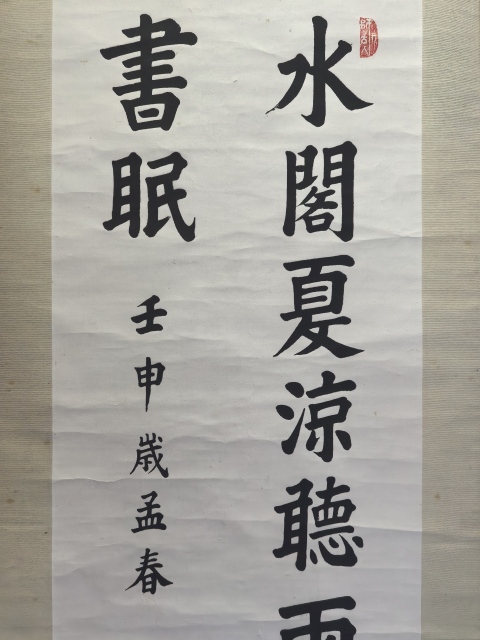 水閣夏涼聽雨
書眠
壬申歲孟春